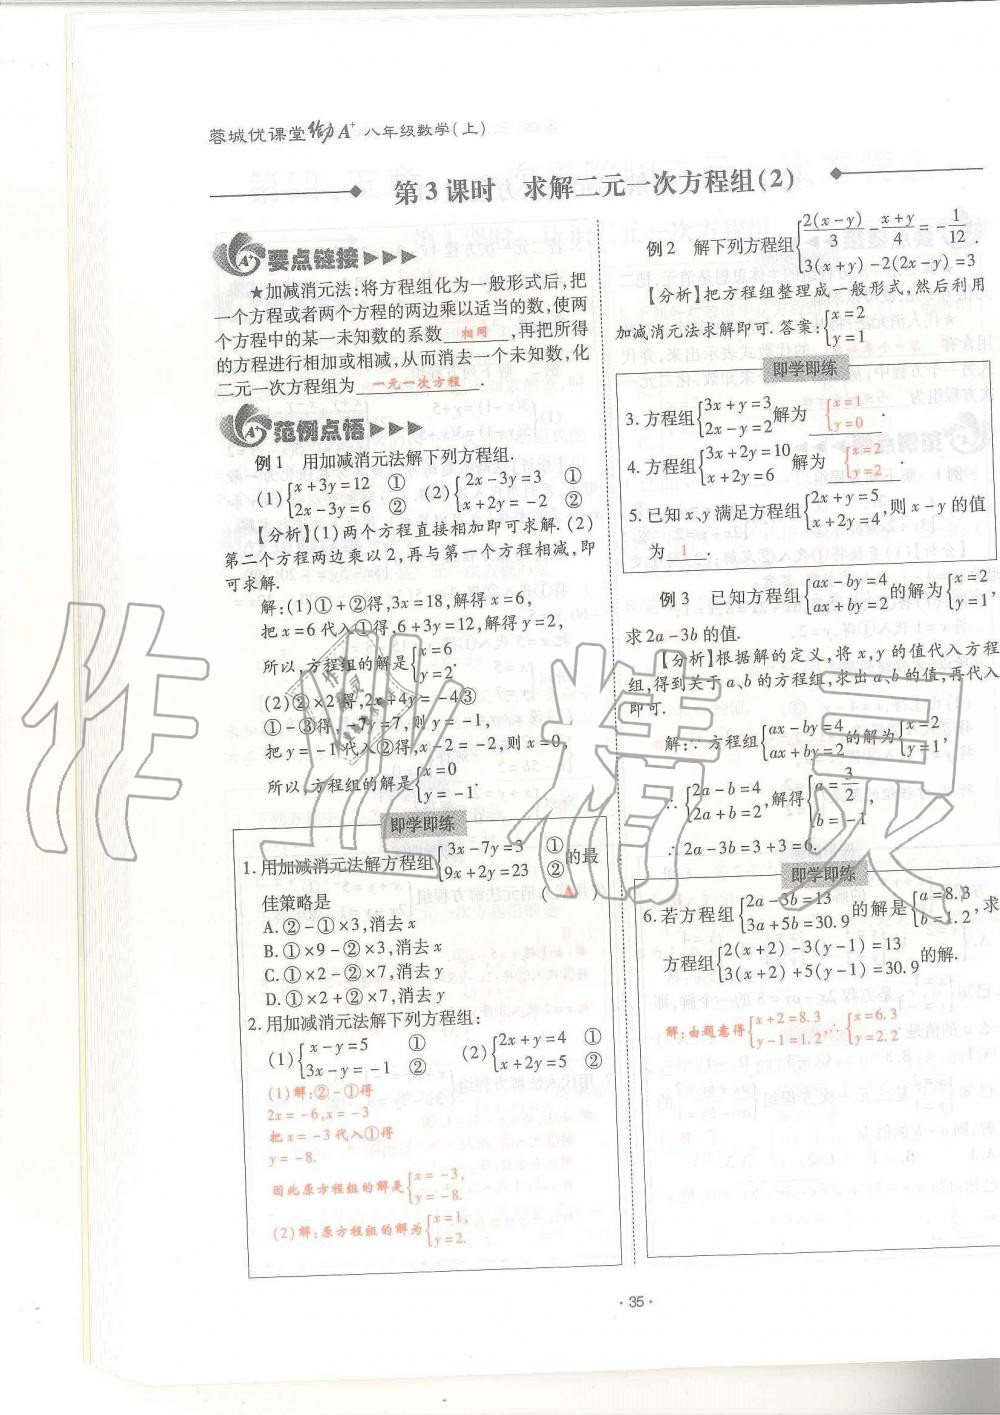 蓉城优课堂 给力A⁺ 八年级数学(上)
第3课时 求解二元一次方程组(2)
要点链接
★加减消元法:将方程组化为一般形式后,把
一个方程或者两个方程的两边乘以适当的数,使两
个方程中的某一未知数的系数 相同 ,再把所得
的方程进行相加或相减,从而消去一个未知数,化
二元一次方程组为 一元一次方程 .
范例点悟
例1 用加减消元法解下列方程组.
(1){x+3y=12 ① 2x-3y=6 ② (2){2x-3y=3 ① x+2y=-2 ②
【分析】(1)两个方程直接相加即可求解.(2)
第二个方程两边乘以2,再与第一个方程相减,即
可求解.
解:(1)①+②得,3x=18,解得x=6,
把x=6代入①得,6+3y=12,解得y=2,
所以,方程组的解是{x=6 y=2.
(2)②×2得,2x+4y=-4③
①-③得,-7y=7,则y=-1,
把y=-1代入②得,x-2=-2,则x=0,
所以,方程组的解是{x=0 y=-1.
即学即练
1.用加减消元法解方程组{3x-7y=3 ① 9x+2y=23 ②的最
佳策略是 ( A )
A.②-①×3,消去x
B.①×9-②×3,消去x
C.①×2-②×7,消去y
D.①×2+②×7,消去y
2.用加减消元法解下列方程组:
(1){x-y=5 ① 3x-y=-1 ② (2){2x+y=4 ① x+2y=5 ②
(1)解:②-①得
2x=-6,x=-3
把x=-3代入①得
y=-8.
因此原方程组的解是{x=-3, y=-8.
(2)解:原方程组的解为{x=1, y=2.
例2 解下列方程组{2(x-y)/3-(x+y)/4=-1/12 3(x+y)-2(2x-y)=3.
【分析】把方程组整理成一般形式,然后利用
加减消元法求解即可.答案:{x=2 y=1
即学即练
3.方程组{3x+y=3 2x-y=2解为 {x=1 y=0 .
4.方程组{3x+2y=10 x+2y=6 解为 {x=2 y=2 .
5.已知x、y满足方程组{2x+y=5 x+2y=4,则x-y的值
为 1 .
例3 已知方程组{ax-by=4 ax+by=2的解为{x=2 y=1,
求2a-3b的值.
【分析】根据解的定义,将x,y的值代入方程
组,得到关于a、b的方程组,求出a、b的值,再代入
即可.
解:∵方程组{ax-by=4 ax+by=2的解为{x=2 y=1,
∴{2a-b=4 2a+b=2,解得{a=3/2, b=-1
∴2a-3b=3+3=6.
即学即练
6.若方程组{2a-3b=13 3a+5b=30.9的解是{a=8.3 b=1.2,求
方程组{2(x+2)-3(y-1)=13 3(x+2)+5(y-1)=30.9的解.
解:由题意得{x+2=8.3 y-1=1.2,∴{x=6.3 y=2.2.
· 35 ·
作业精灵